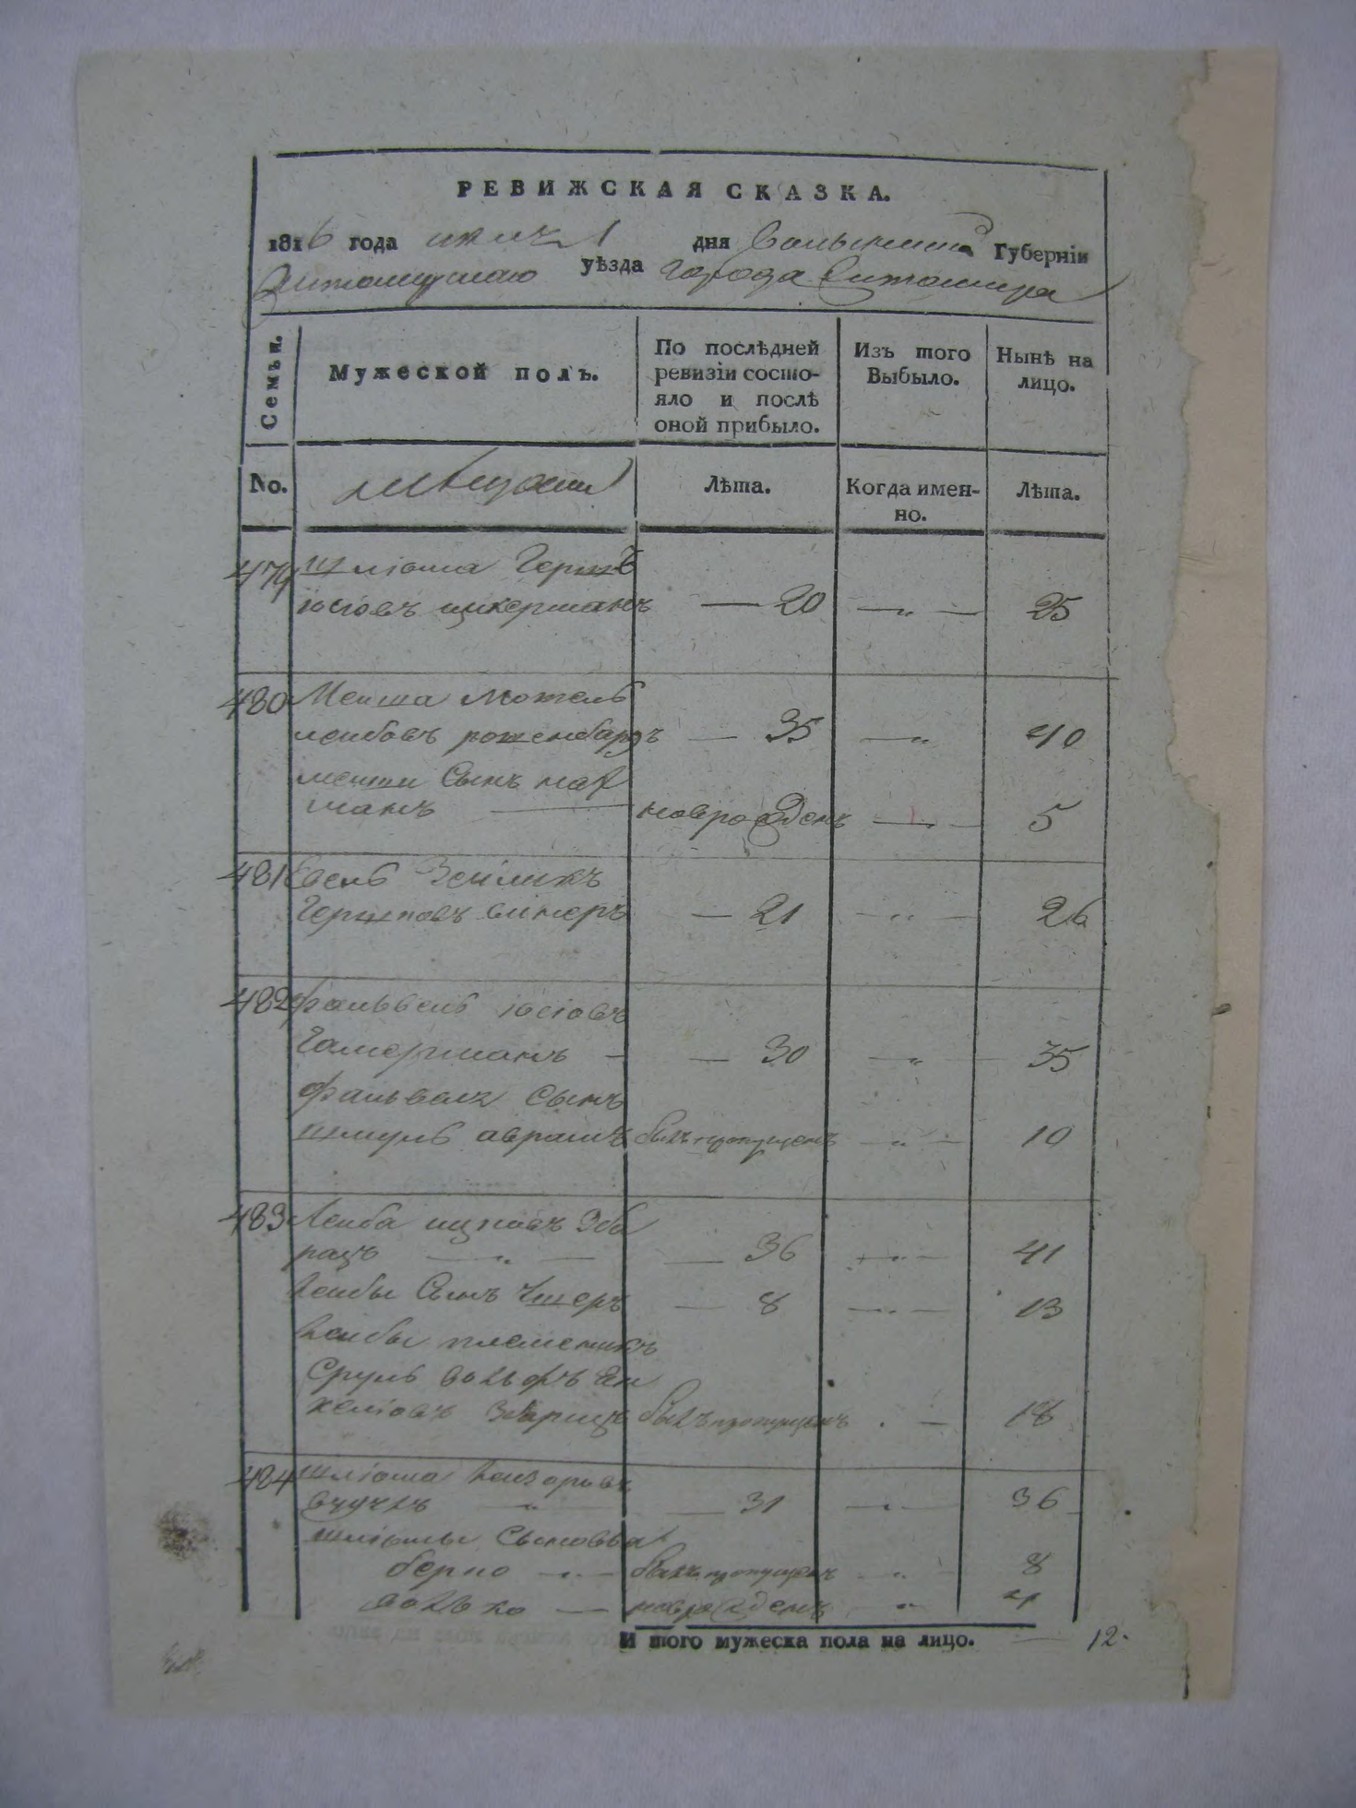 РЕВИЖСКАЯ СКАЗКА.
1816 года июля 1 дня Волынской Губерніи
Житомирскаго уѣзда города Житомира
Семьи.
Мужеской полъ.
По послѣдней ревизіи состо-
яло и послѣ
оной прибыло.
Изъ того
Выбыло.
Нынѣ на
лицо.
No.
Лѣта.
Когда имен-
но.
Лѣта.
479 Шліома Герш
іосіовъ цукерманъ — 20 — „ — 25
480 Менша Мотель
леибовъ розенбаргъ — 35 — „ 40
менши Сынъ нах
манъ — новрожденъ — „ — 5
481 Евель Зейликъ
Гершковъ винеръ — 21 — „ — 26
482 Фаивель іосіовъ
Гамерманъ — — 30 — „ — 35
Фаивеля Сынъ
шмуль аврамъ былъ пропущенъ — „ — 10
483 Леиба ицковъ Зба
рацъ — „ — — 36 — „ — 41
Леибы Сынъ — 8 — „ — 13
Леибы племеникъ
Сруль вольфъ Ян
келіовъ былъ пропущенъ — 18
484 Шліома Леизоровъ
— „ — 31 — „ — 36
шліомы Сыновья
берко — „ — былъ пропущенъ — „ — 8
волько — новрожденъ — „
И того мужеска пола на лицо. — 12.